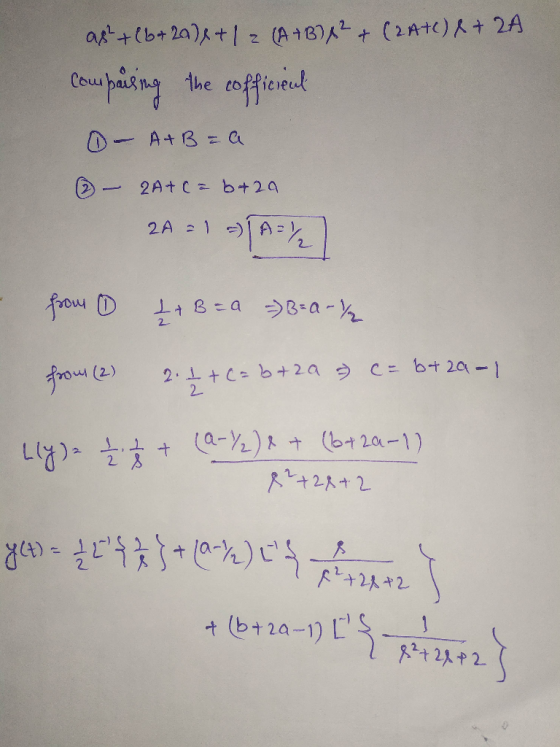 as²+(b+2a)s+1 = (A+B)s² + (2A+C)s + 2A
Comparing the cofficient
① — A+B = a
② — 2A+C = b+2a
2A = 1 ⇒ A=1/2
from ① 1/2 + B = a ⇒ B=a-1/2
from (2) 2·1/2 + C = b+2a ⇒ C = b+2a-1
L(y) = 1/2·1/s + ((a-1/2)s + (b+2a-1))/(s²+2s+2)
y(t) = 1/2 L⁻¹{1/s} + (a-1/2) L⁻¹{s/(s²+2s+2)}
+ (b+2a-1) L⁻¹{1/(s²+2s+2)}